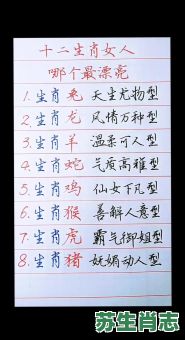 十二生肖女人
哪个最漂亮
1.生肖兔 天生尤物型
2.生肖龙 风情万种型
3.生肖羊 温柔可人型
4.生肖蛇 气质高雅型
5.生肖鸡 仙女下凡型
6.生肖猴 善解人意型
7.生肖虎 霸气御姐型
8.生肖猪 妩媚动人型
苏生肖志